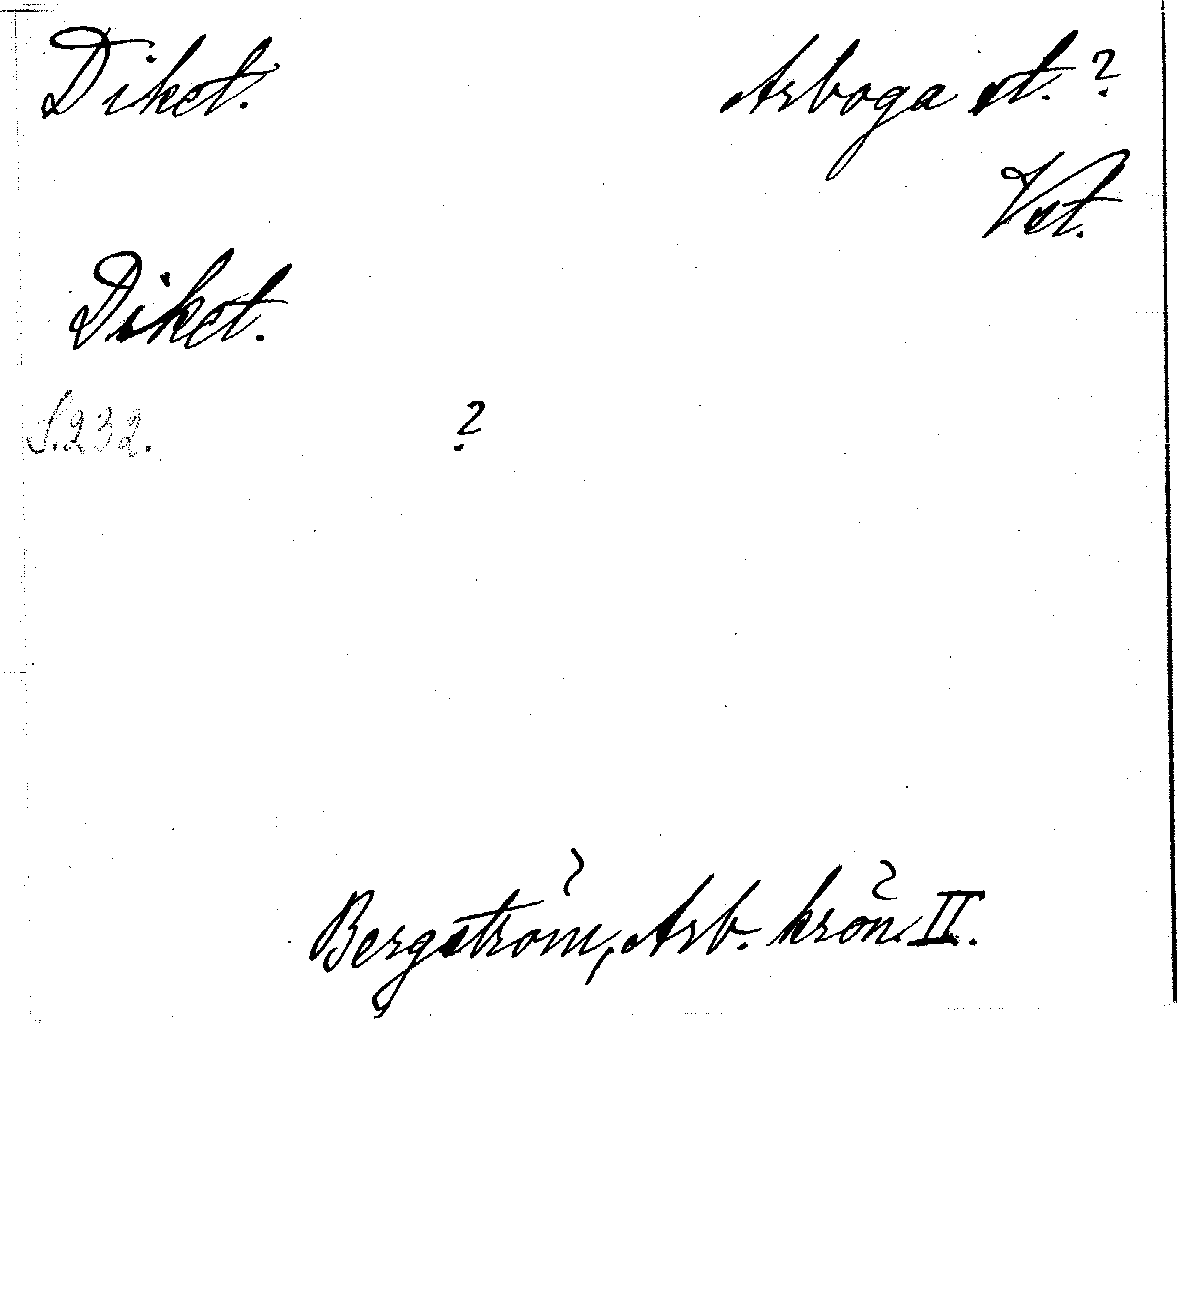 Diket. Arboga st. ?
Vst.
Diket.
S. 232. ?
Bergström, Arb. krön. II.